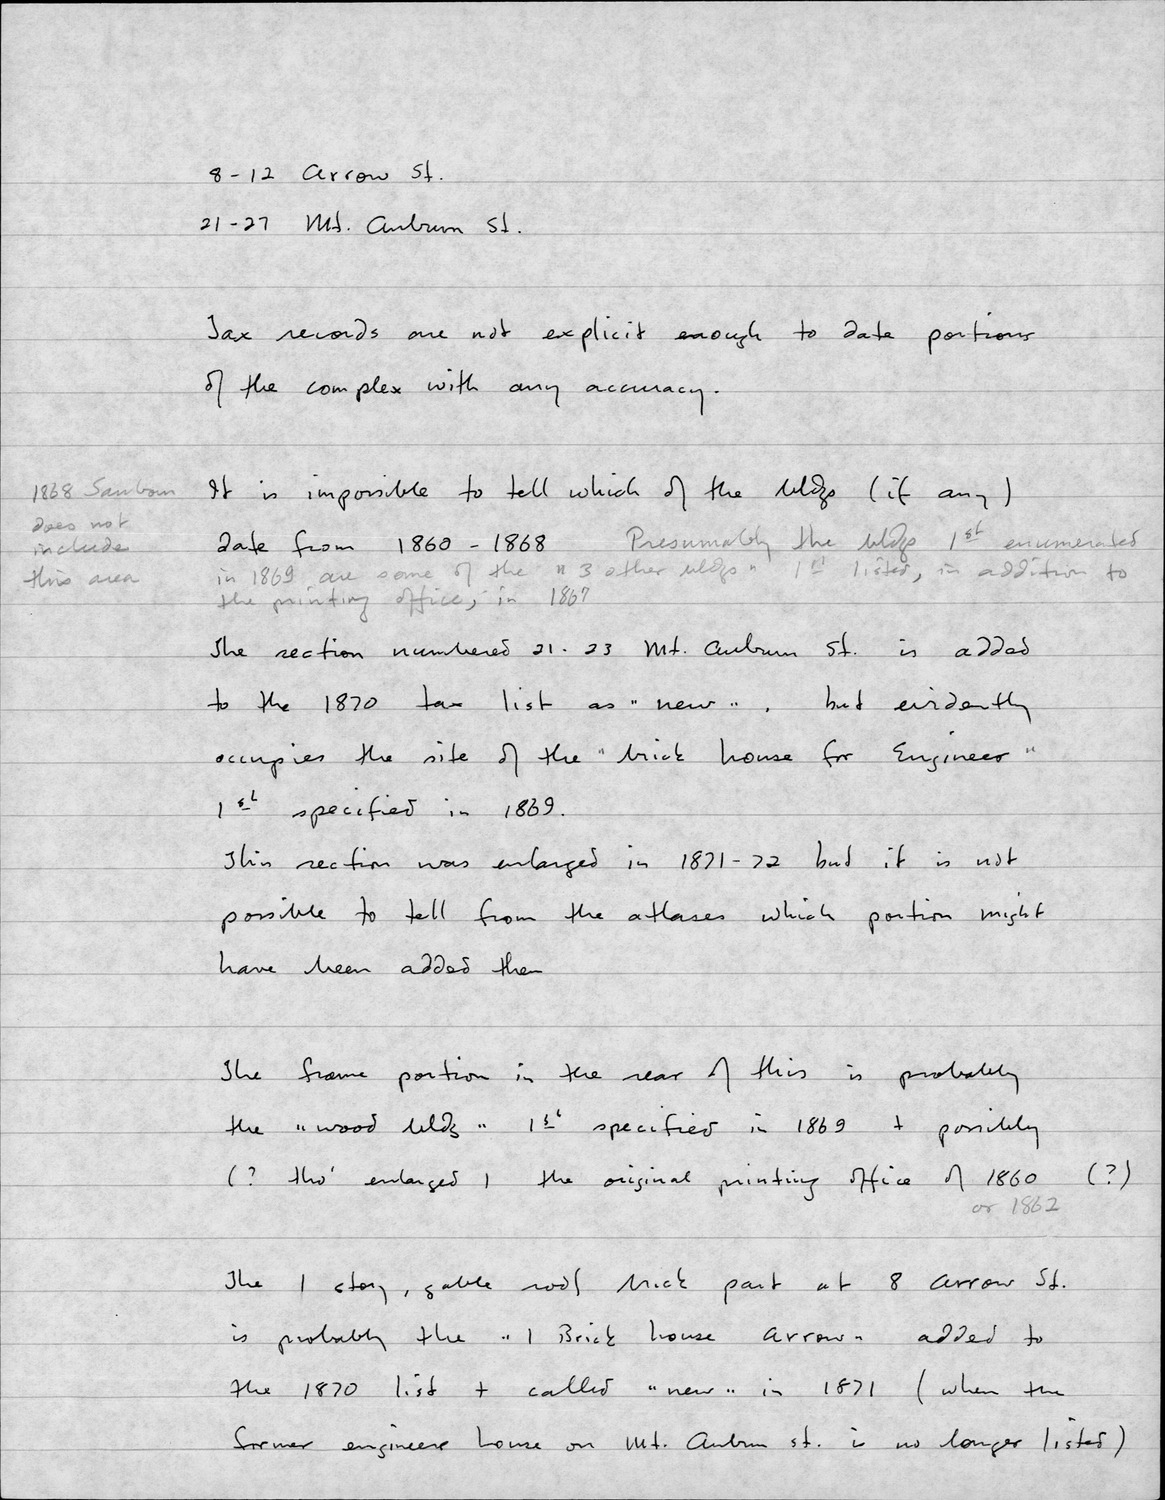 8-12 Arrow St.
21-27 Mt. Auburn St.
Tax records are not explicit enough to date portions
of the complex with any accuracy.
1868 Sanborn
does not
include
this area
It is impossible to tell which of the bldgs (if any)
date from 1860-1868 Presumably the bldgs 1st enumerated
in 1869 are some of the "3 other bldgs" 1st listed, in addition to
the printing office, in 1867
The section numbered 21-23 Mt. Auburn St. is added
to the 1870 tax list as "new", but evidently
occupies the site of the "brick house for Engineer"
1st specified in 1869.
This section was enlarged in 1871-72 but it is not
possible to tell from the atlases which portion might
have been added then
The frame portion in the rear of this is probably
the "wood bldg" 1st specified in 1869 + possibly
(? tho' enlarged) the original printing office of 1860 (?)
or 1862
The 1 story, gable roof brick part at 8 Arrow St.
is probably the "1 Brick house Arrow" added to
the 1870 list + called "new" in 1871 (when the
former engineers house on Mt. Auburn St. is no longer listed)